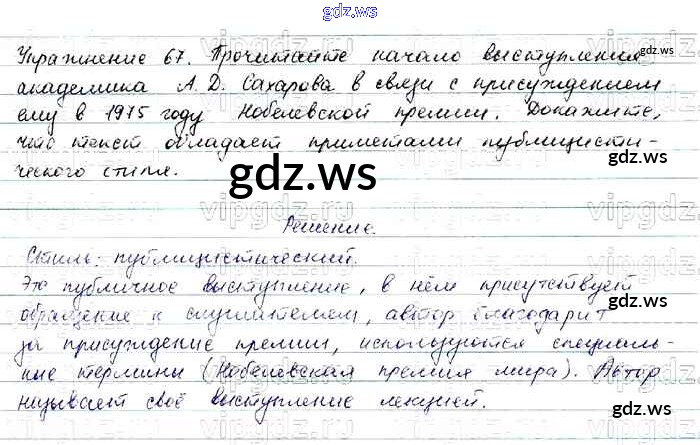 gdz.ws
Упражнение 67. Прочитайте начало выступления
gdz.ws
академика А. Д. Сахарова в связи с присуждением
ему в 1975 году Нобелевской премии. Докажите,
что текст обладает приметами публицисти-
gdz.ws
ческого стиля.
gdz.ws
Решение.
Стиль: публицистический.
Это публичное выступление, в нём присутствует
gdz.ws
обращение к слушателям, автор благодарит
за присуждение премии, используются специаль-
ные термины (Нобелевская премия мира). Автор
называет своё выступление лекцией.
gdz.ws